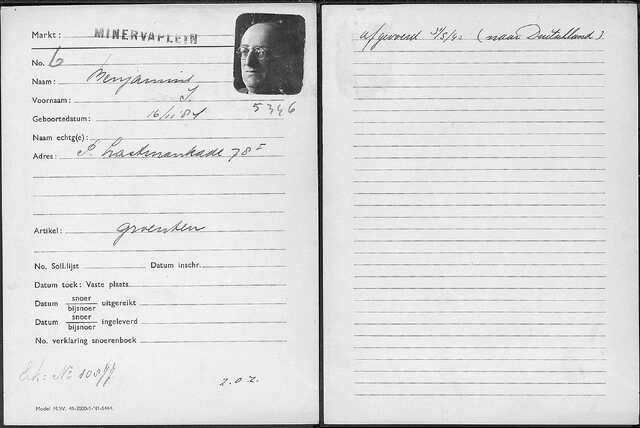 Markt: MINERVAPLEIN
No. 6
Naam: Benjamins
Voornaam: J.
5346
Geboortedatum: 16/11 '84
Naam echtg(e):
Adres: P. Lastmankade 78 I
Artikel: groenten
No. Soll.lijst Datum inschr.
Datum toek: Vaste plaats
Datum snoer / bijsnoer uitgereikt
Datum snoer / bijsnoer ingeleverd
No. verklaring snoerenboek
Erk: No
z.o.z.
Model M.W.
afgevoerd (naar Duitschland).